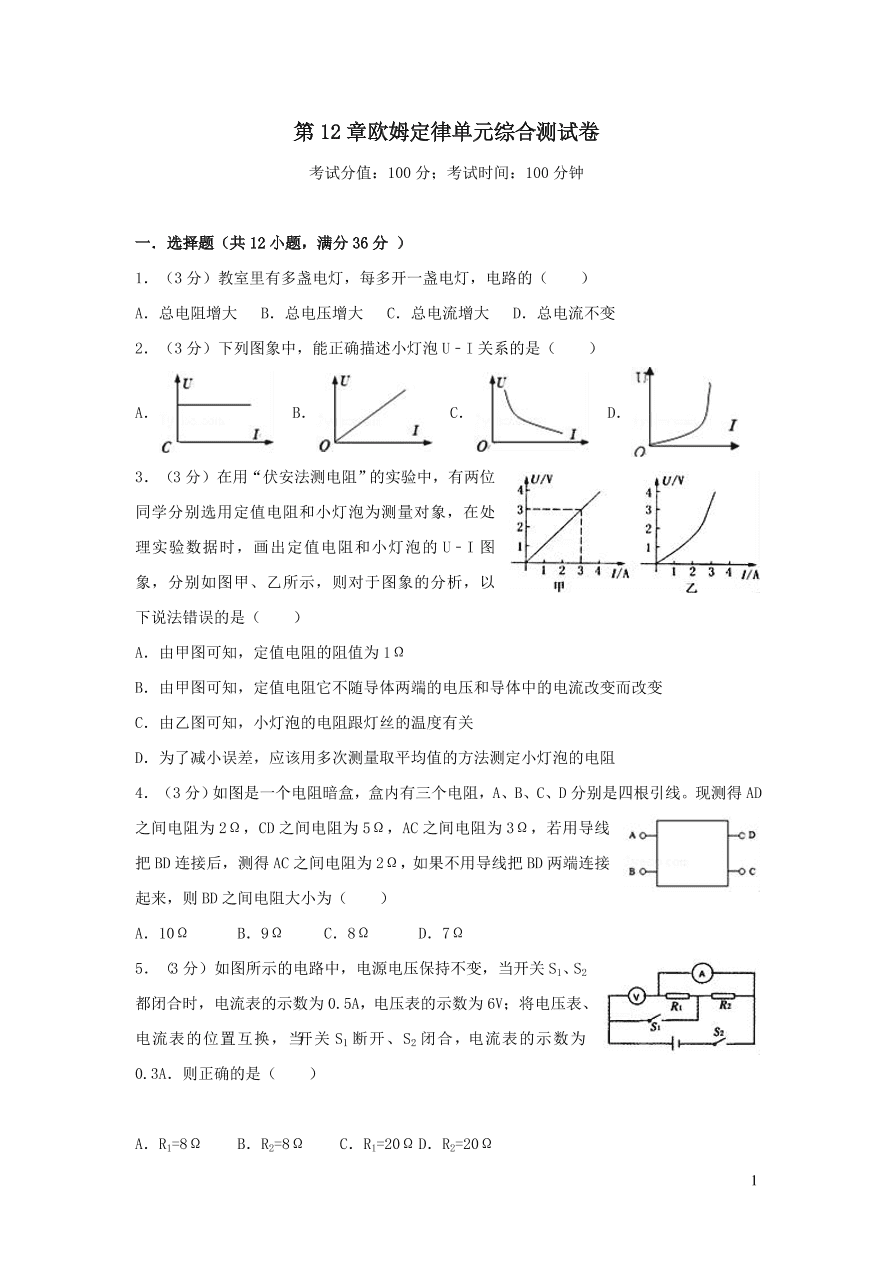 第 12 章欧姆定律单元综合测试卷
考试分值：100 分；考试时间：100 分钟
一．选择题（共 12 小题，满分 36 分 ）
1．（3 分）教室里有多盏电灯，每多开一盏电灯，电路的（　　）
A．总电阻增大　B．总电压增大　C．总电流增大　D．总电流不变
2．（3 分）下列图象中，能正确描述小灯泡 U﹣I 关系的是（　　）
A． U I C B． U I O C． U I O D． U I O
3．（3 分）在用“伏安法测电阻”的实验中，有两位
同学分别选用定值电阻和小灯泡为测量对象，在处
理实验数据时，画出定值电阻和小灯泡的 U﹣I 图
象，分别如图甲、乙所示，则对于图象的分析，以
下说法错误的是（　　）
U/V 4 3 2 1 1 2 3 4 I/A 甲
U/V 4 3 2 1 1 2 3 4 I/A 乙
A．由甲图可知，定值电阻的阻值为 1Ω
B．由甲图可知，定值电阻它不随导体两端的电压和导体中的电流改变而改变
C．由乙图可知，小灯泡的电阻跟灯丝的温度有关
D．为了减小误差，应该用多次测量取平均值的方法测定小灯泡的电阻
4．（3 分）如图是一个电阻暗盒，盒内有三个电阻，A、B、C、D 分别是四根引线。现测得 AD
之间电阻为 2Ω，CD 之间电阻为 5Ω，AC 之间电阻为 3Ω，若用导线
把 BD 连接后，测得 AC 之间电阻为 2Ω，如果不用导线把 BD 两端连接
起来，则 BD 之间电阻大小为（　　）
A D
B C
A．10Ω　B．9Ω　C．8Ω　D．7Ω
5．（3 分）如图所示的电路中，电源电压保持不变，当开关 S₁、S₂
都闭合时，电流表的示数为 0.5A，电压表的示数为 6V；将电压表、
电流表的位置互换，当开关 S₁ 断开、S₂ 闭合，电流表的示数为
0.3A．则正确的是（　　）
A
V R₁ R₂
S₁ S₂
A．R₁=8Ω　B．R₂=8Ω　C．R₁=20Ω D．R₂=20Ω
1